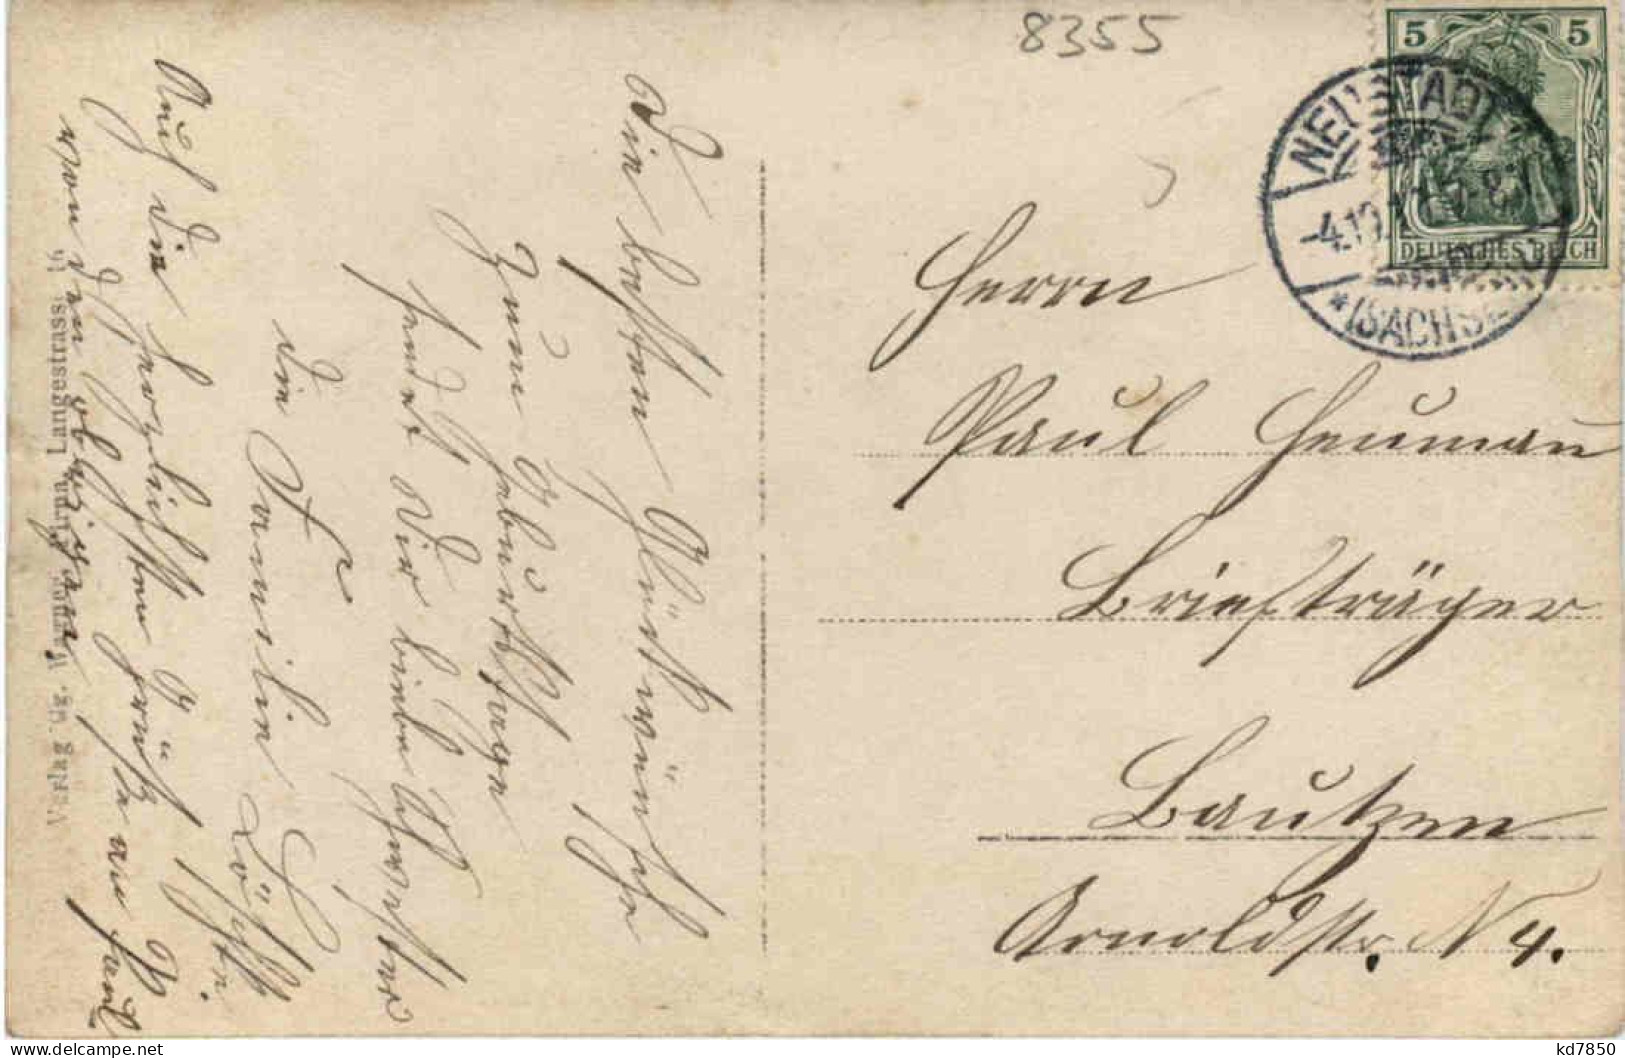 8355
5 5
DEUTSCHES REICH
NEUSTADT
-4.10.
*(SACHSE
Herrn
Paul Heumann
Briefträger
Bautzen
Arnoldstr. N 4.
Die besten Glückwünsche
zum Geburtstage
sendet Dir liebe Schwester
die Familie
Auch die herzlichsten Grüße an
von den obrigen
Verlag Gg. Langestrass
kd7850